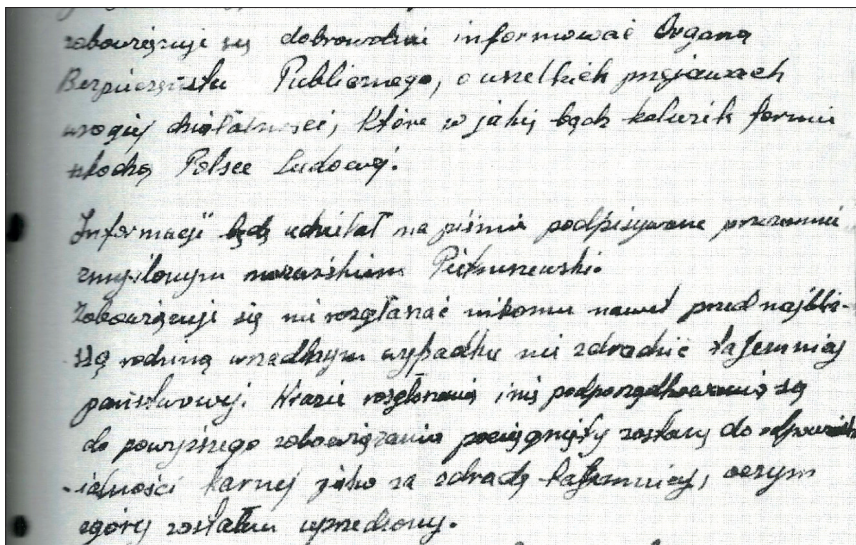 zobowięzuję się dobrowolni informować Organa
Bezpieczeństw Publicznego, o wszelkich przejawach
wrogiej działalności, które w jakiej bądź kolwiek formie
szkodzą Polsce Ludowej.
Informacji będę udzielał na piśmie podpisywane przezemnie
zmyślonym nazwiskiem
Zobowięzuje się nie rozgłaszać nikomu nawet przed najbli-
szą rodziną wrzadnym wypadku nie zdradzić tajemnicy
państwowej. Wrazie rozgłoszenia i nie podporządkowania się
do powyższego zobowięzania pociągnięty zostanę do odpowiedz
ialności karnej jako za zdradę tajemnicy, oczym
zgóry zostałem uprzedzony.